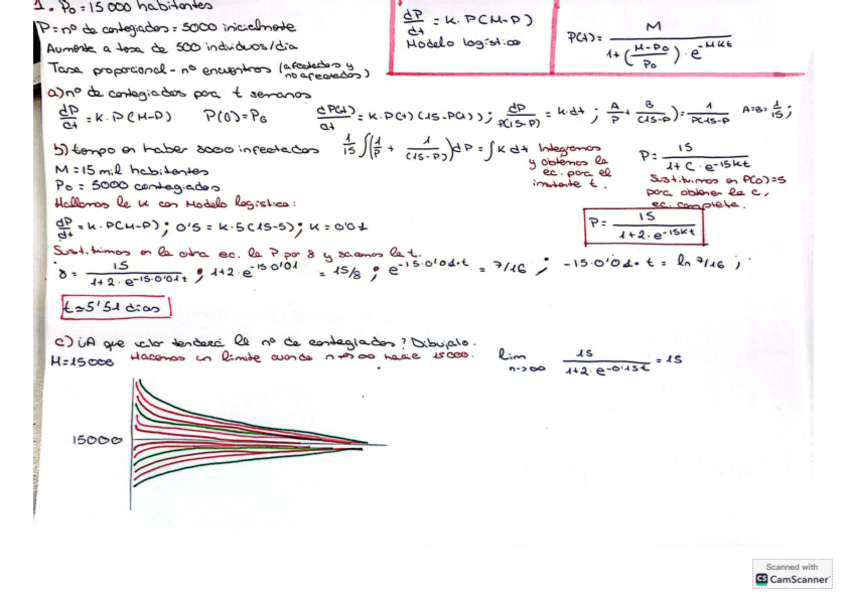 1. P₀ = 15 000 habitantes
P = nº de contagiados = 5000 inicialmente
Aumenta a tasa de 500 individuos/dia
Tasa proporcional - nº encuentros (afectados y no afectados)
dP/dt = K · P(M-P)
Modelo logístico
P(t) = M / (1 + ((M-P₀)/P₀) · e^-MKt)
a) nº de contagiados para t semanas
dP/dt = K · P(M-P)   P(0) = P₀   dP(t)/dt = K · P(t)(15-P(t)); dP/P(15-P) = K·dt ; A/P + B/(15-P) = 1/P(15-P   A=B= 1/15;
b) tiempo en haber 8000 infectados   1/15 ∫(1/P + 1/(15-P))dP = ∫K dt   Integramos y obtenemos la ec. para el instante t.
P = 15 / (1 + C · e^-15Kt)
Sustituimos en P(0)=5 para obtener la C, ec. completa.
P = 15 / (1+2·e^-15Kt)
M = 15 mil habitantes
P₀ = 5000 contagiados
Hallamos la K con Modelo logístico:
dP/dt = K · P(M-P) ; 0'5 = K·5(15-5) ; K = 0'01
Sustituimos en la otra ec. la P por 8 y sacamos la t.
8 = 15 / (1+2·e^-15·0'01t) ; 1+2·e^-15·0'01 = 15/8 ; e^-15·0'01·t = 7/16 ; -15·0'01·t = ln 7/16 ;
t = 5'51 dias
c) ¿A que valor tenderá el nº de contagiados? Dibujalo.
M = 15000 Hacemos un límite cuando n→∞ hacia 15000.   lim n→∞ 15 / (1+2·e^-0'15t) = 15
15000
Scanned with
CS CamScanner